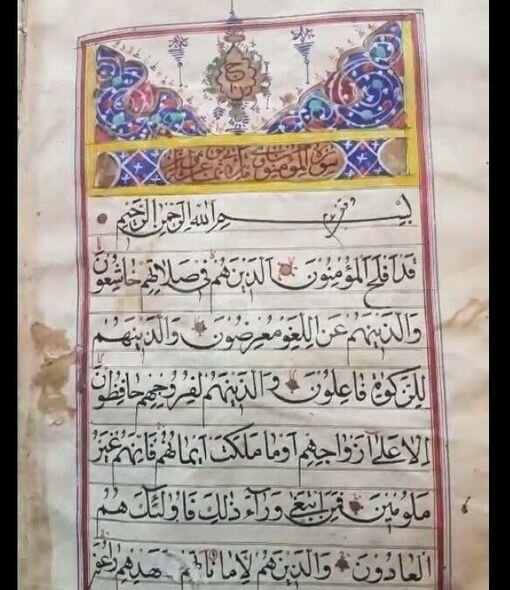 سورة المؤمنون
بسم الله الرحمن الرحيم
قَدْ اَفْلَحَ الْمُؤْمِنُونَ اَلَّذِينَ هُمْ فِى صَلَاتِهِمْ خَاشِعُونَ
وَالَّذِينَ هُمْ عَنِ اللَّغْوِ مُعْرِضُونَ وَالَّذِينَ هُمْ
لِلزَّكٰوةِ فَاعِلُونَ وَالَّذِينَ هُمْ لِفُرُوجِهِمْ حَافِظُونَ
اِلَّا عَلٰى اَزْوَاجِهِمْ اَوْ مَا مَلَكَتْ اَيْمَانُهُمْ فَاِنَّهُمْ غَيْرُ
مَلُومِينَ فَمَنِ ابْتَغٰى وَرَآءَ ذٰلِكَ فَاُولٰٓئِكَ هُمُ
الْعَادُونَ وَالَّذِينَ هُمْ لِاَمَانَاتِهِمْ